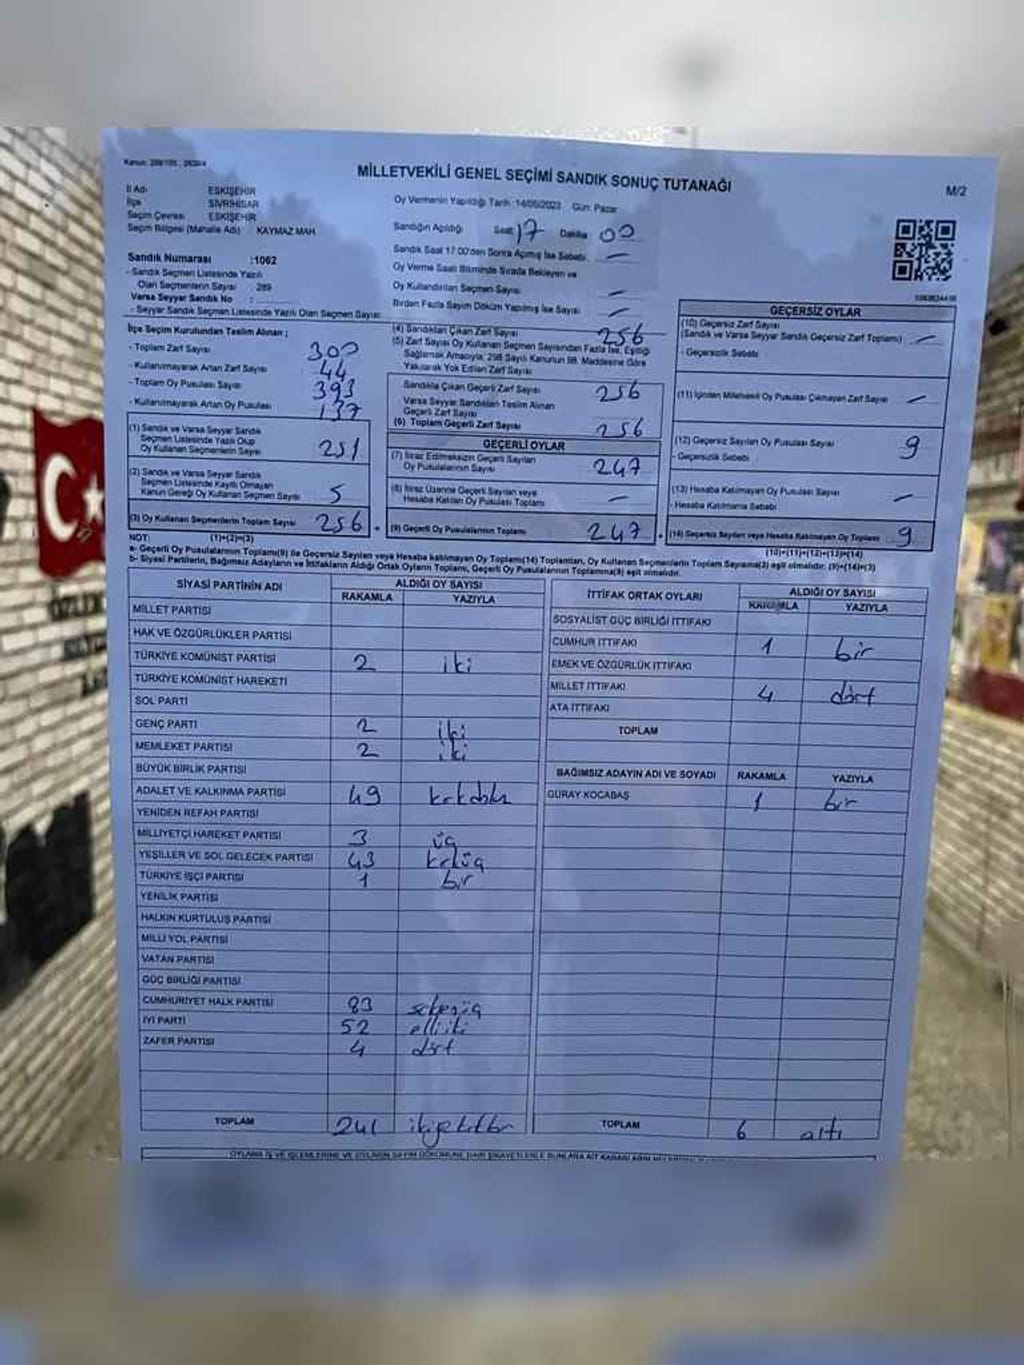 MİLLETVEKİLİ GENEL SEÇİMİ SANDIK SONUÇ TUTANAĞI
M/2
İl Adı ESKİŞEHİR
İlçe SİVRİHİSAR
Seçim Çevresi ESKİŞEHİR
Seçim Bölgesi (Mahalle Adı) KAYMAZ MAH.
Sandık Numarası :1062
- Sandık Seçmen Listesinde Yazılı
Olan Seçmenlerin Sayısı : 289
Varsa Seyyar Sandık No :
- Seyyar Sandık Seçmen Listesinde Yazılı Olan Seçmen Sayısı
Oy Vermenin Yapıldığı Tarih :14/05/2023 Gün: Pazar
Sandığın Açıldığı Saat 17 Dakika 00
Sandık Saat 17:00'den Sonra Açımış İse Sebebi —
Oy Verme Saati Bitiminde Sırada Bekleyen ve
Oy Kullandırılan Seçmen Sayısı —
Birden Fazla Sayım Döküm Yapılmış İse Sayısı —
İlçe Seçim Kurulundan Teslim Alınan ;
- Toplam Zarf Sayısı 300
- Kullanılmayarak Artan Zarf Sayısı 44
- Toplam Oy Pusulası Sayısı 393
- Kullanılmayarak Artan Oy Pusulası 137
(1) Sandık ve Varsa Seyyar Sandık
Seçmen Listesinde Yazılı Olup
Oy Kullanan Seçmenlerin Sayısı 251
(2) Sandık ve Varsa Seyyar Sandık
Seçmen Listesinde Kayıtlı Olmayan
Kanun Gereği Oy Kullanan Seçmen Sayısı 5
(3) Oy Kullanan Seçmenlerin Toplam Sayısı 256
(4) Sandıktan Çıkan Zarf Sayısı 256
(5) Zarf Sayısı Oy Kullanan Seçmen Sayısından Fazla İse, Eşitliği
Sağlamak Amacıyla, 298 Sayılı Kanunun 98. Maddesine Göre
Yakılarak Yok Edilen Zarf Sayısı
Sandıkta Çıkan Geçerli Zarf Sayısı 256
Varsa Seyyar Sandıktan Teslim Alınan
Geçerli Zarf Sayısı
(6) Toplam Geçerli Zarf Sayısı 256
GEÇERLİ OYLAR
(7) İtiraz Edilmeksizin Geçerli Sayılan
Oy Pusulalarının Sayısı 247
(8) İtiraz Üzerine Geçerli Sayılan veya
Hesaba Katılan Oy Pusulası Toplamı —
(9) Geçerli Oy Pusulalarının Toplamı 247
GEÇERSİZ OYLAR
(10) Geçersiz Zarf Sayısı
(Sandık ve Varsa Seyyar Sandık Geçersiz Zarf Toplamı) —
- Geçersizlik Sebebi
(11) İçinden Milletvekili Oy Pusulası Çıkmayan Zarf Sayısı —
(12) Geçersiz Sayılan Oy Pusulası Sayısı 9
- Geçersizlik Sebebi
(13) Hesaba Katılmayan Oy Pusulası Sayısı —
- Hesaba Katılmama Sebebi
(14) Geçersiz Sayılan veya Hesaba Katılmayan Oy Toplamı 9
NOT: (1)+(2)=(3)
(10)+(11)+(12)+(13)=(14)
a- Geçerli Oy Pusulalarının Toplamı(9) ile Geçersiz Sayılan veya Hesaba katılmayan Oy Toplamı(14) Toplamları, Oy Kullanan Seçmenlerin Toplam Sayısına(3) eşit olmalıdır. (9)+(14)=(3)
b- Siyasi Partilerin, Bağımsız Adayların ve İttifakların Aldığı Ortak Oyların Toplamı, Geçerli Oy Pusulalarının Toplamına(9) eşit olmalıdır.
SİYASİ PARTİNİN ADI ALDIĞI OY SAYISI
RAKAMLA YAZIYLA
MİLLET PARTİSİ
HAK VE ÖZGÜRLÜKLER PARTİSİ
TÜRKİYE KOMÜNİST PARTİSİ 2 iki
TÜRKİYE KOMÜNİST HAREKETİ
SOL PARTİ
GENÇ PARTİ 2 iki
MEMLEKET PARTİSİ 2 iki
BÜYÜK BİRLİK PARTİSİ
ADALET VE KALKINMA PARTİSİ 49
YENİDEN REFAH PARTİSİ
MİLLİYETÇİ HAREKET PARTİSİ 3 üç
YEŞİLLER VE SOL GELECEK PARTİSİ 43
TÜRKİYE İŞÇİ PARTİSİ 1 bir
YENİLİK PARTİSİ
HALKIN KURTULUŞ PARTİSİ
MİLLİ YOL PARTİSİ
VATAN PARTİSİ
GÜÇ BİRLİĞİ PARTİSİ
CUMHURİYET HALK PARTİSİ 83 seksenüç
İYİ PARTİ 52 elliiki
ZAFER PARTİSİ 4 dört
TOPLAM 241
İTTİFAK ORTAK OYLARI ALDIĞI OY SAYISI
RAKAMLA YAZIYLA
SOSYALİST GÜÇ BİRLİĞİ İTTİFAKI
CUMHUR İTTİFAKI 1 bir
EMEK VE ÖZGÜRLÜK İTTİFAKI
MİLLET İTTİFAKI 4 dört
ATA İTTİFAKI
TOPLAM
BAĞIMSIZ ADAYIN ADI VE SOYADI RAKAMLA YAZIYLA
GÜRAY KOCABAŞ 1 bir
TOPLAM 6 altı